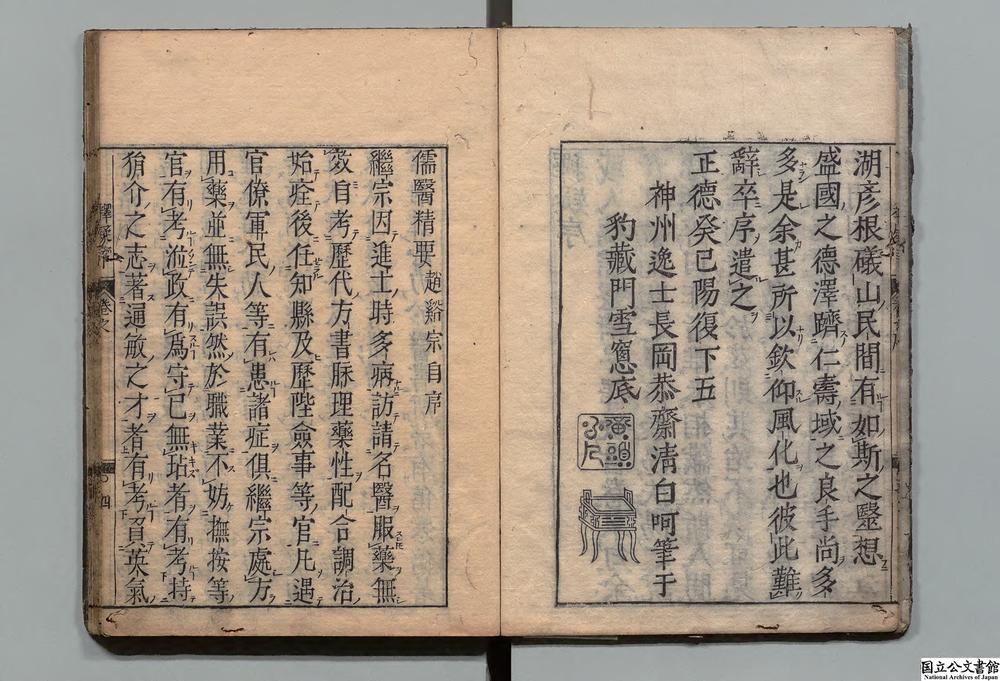 湖彦根礒山民間有如斯之毉想
盛國之德澤躋仁壽域之良手尚多
多是余甚所以欽仰風化也彼此難
辭卒序遣之
正德癸巳陽復下五
神州逸士長岡恭齋清白呵筆于
豹藏門雪窻底
儒醫精要趙繼宗自序
繼宗因進士時多病訪請名醫服藥無
效自考歷代方書脉理藥性配合調治
始痊後任知縣及歷陞僉事等官凡遇
官僚軍民人等有患諸症俱繼宗處方
用藥並無失誤然於職業不妨撫按等
官有考涖政有爲守已無玷者有考持
狷介之志著通敏之才者有考負英氣
卷之
四
国立公文書館
National Archives of Japan